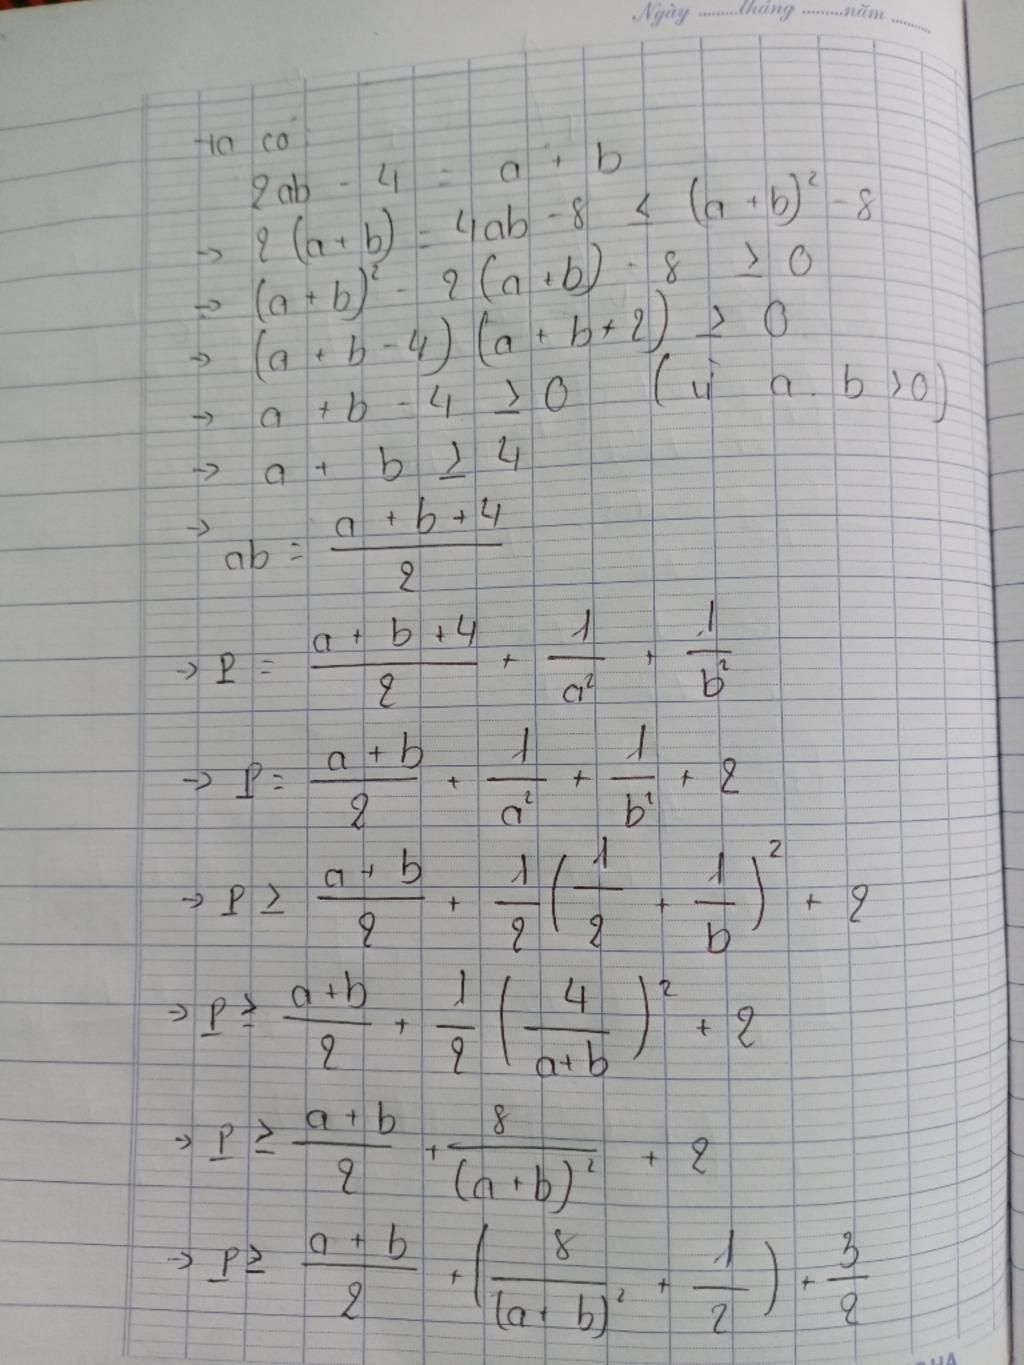 Ngày ........tháng .........năm ........
ta có:
2ab - 4 = a + b
→ 2(a+b) = 4ab - 8 ≤ (a+b)² - 8
→ (a+b)² - 2(a+b) - 8 ≥ 0
→ (a+b-4)(a+b+2) ≥ 0
→ a+b-4 ≥ 0 (vì a. b >0)
→ a + b ≥ 4
→ ab = \frac{a+b+4}{2}
→ P = \frac{a+b+4}{2} + \frac{1}{a²} + \frac{1}{b²}
→ P = \frac{a+b}{2} + \frac{1}{a²} + \frac{1}{b²} + 2
→ P ≥ \frac{a+b}{2} + \frac{1}{2}(\frac{1}{2} + \frac{1}{b})² + 2
→ P ≥ \frac{a+b}{2} + \frac{1}{2}(\frac{4}{a+b})² + 2
→ P ≥ \frac{a+b}{2} + \frac{8}{(a+b)²} + 2
→ P ≥ \frac{a+b}{2} + (\frac{8}{(a+b)²} + \frac{1}{2}) + \frac{3}{2}